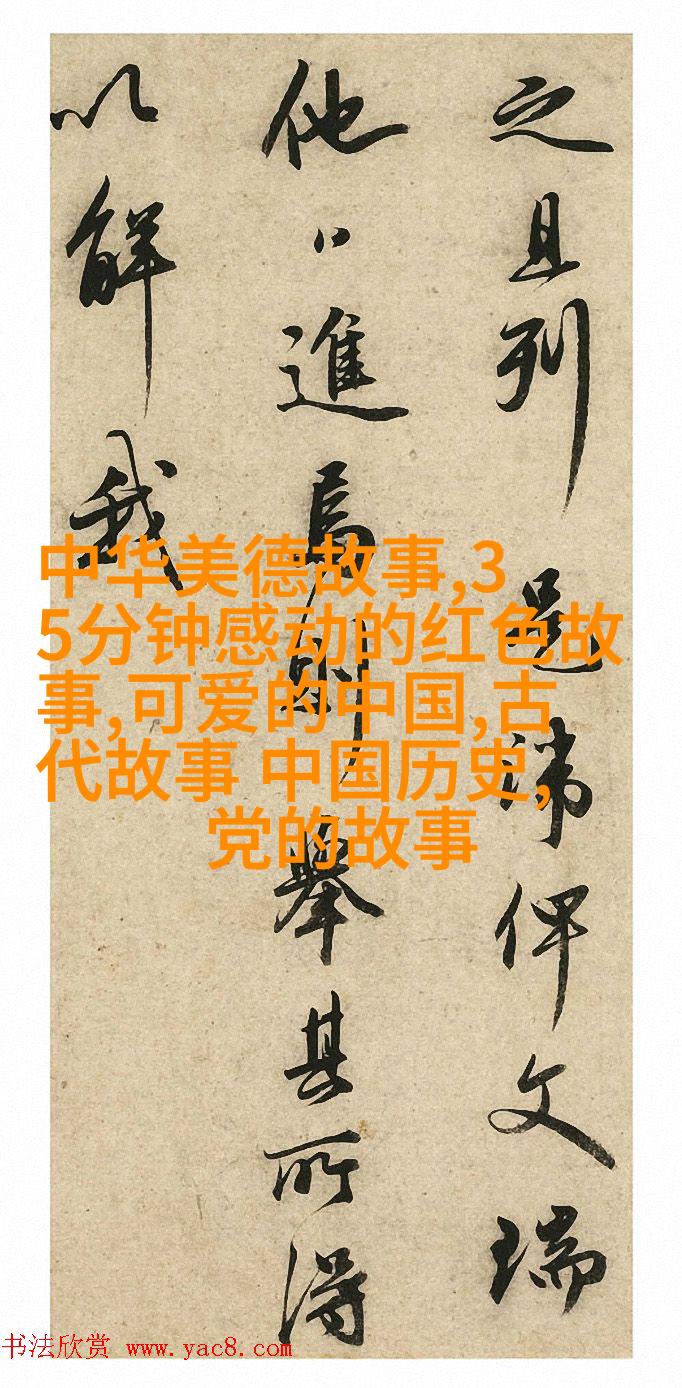 之且列題諱俾文瑞
他日進焉則舉其所得
以解我
中华美德故事,3
5分钟感动的红色故
事,可爱的中国,古
代故事 中国历史,
党的故事
书法欣赏 www.yac8.com